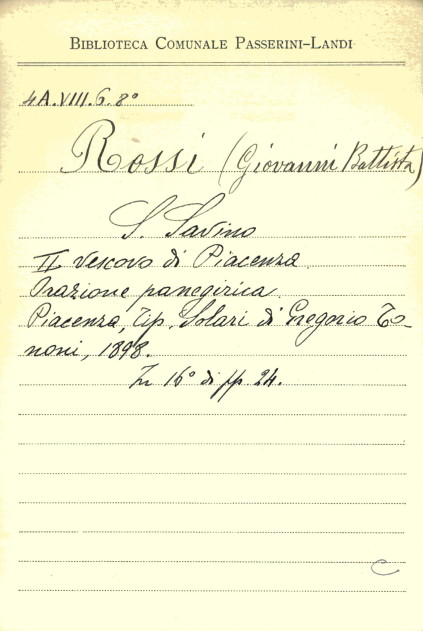 BIBLIOTECA COMUNALE PASSERINI-LANDI
4A.VIII.6.8°
Rossi (Giovanni Battista)
S. Savino
II Vescovo di Piacenza
Orazione panegirica
Piacenza, Tip. Solari di Gregorio To-
noni, 1898.
In 16° di pp. 24.